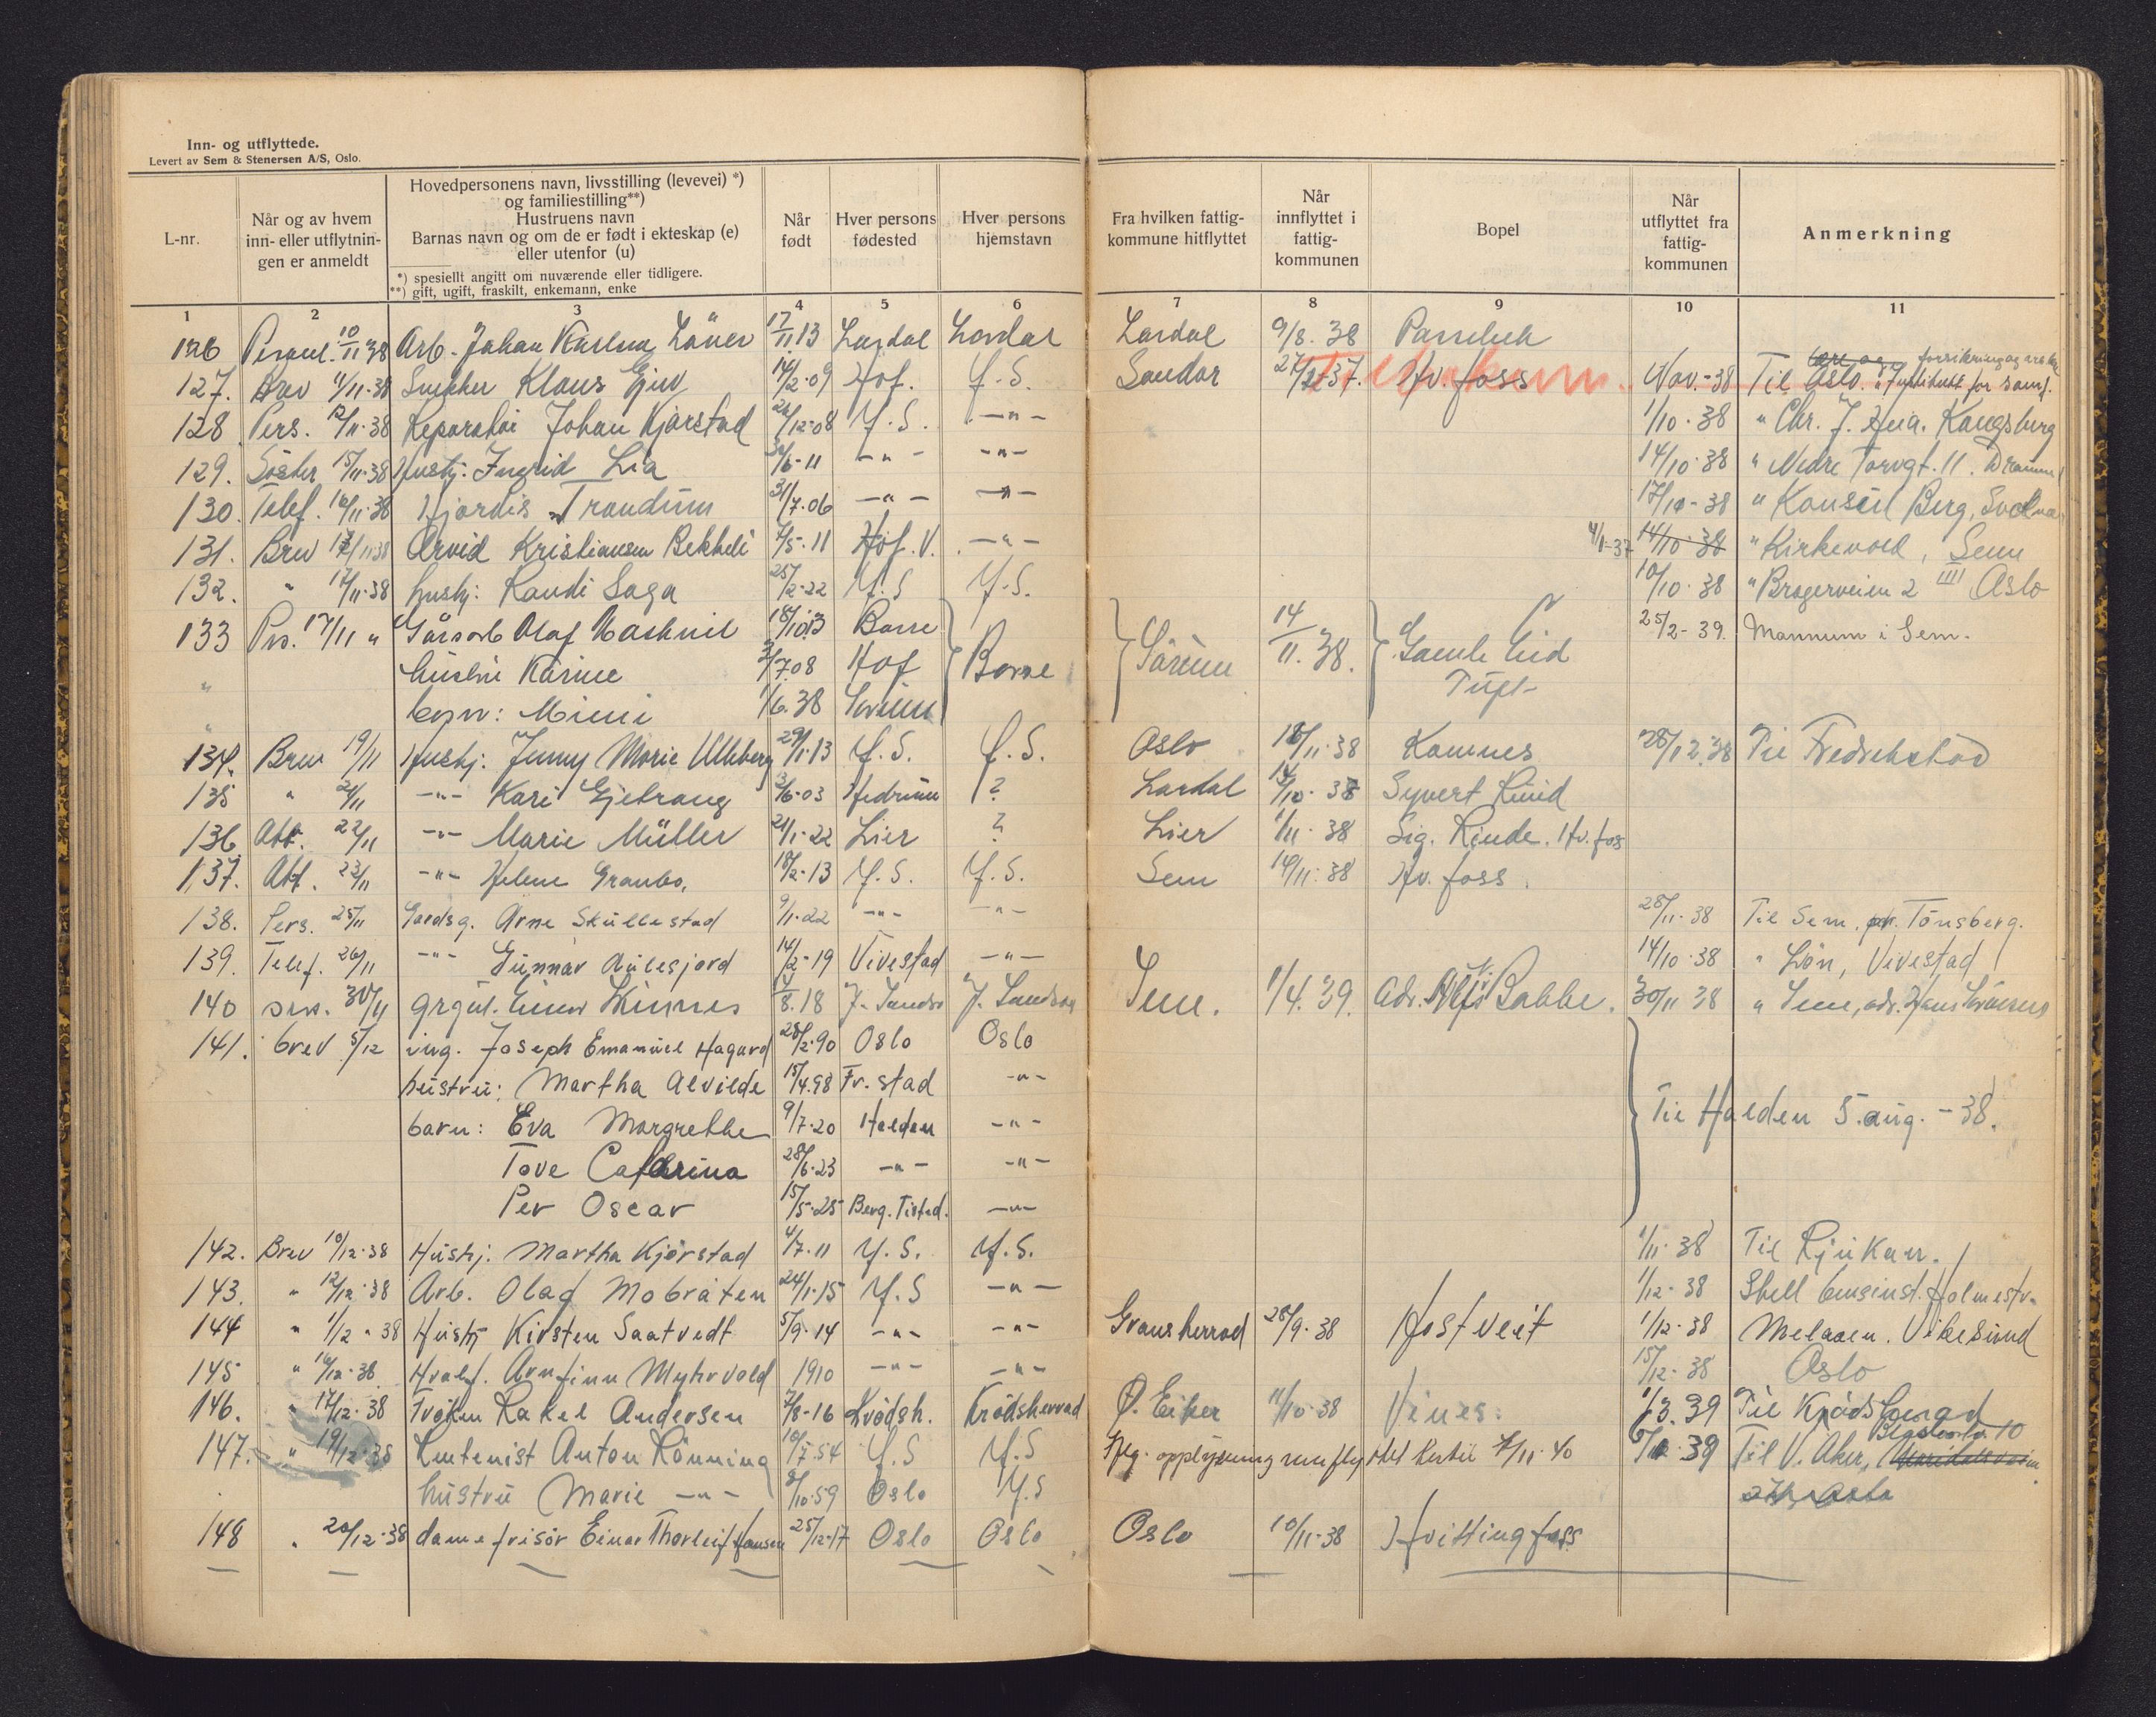 Inn- og utflyttede.
Levert av Sem & Stenersen A/S, Oslo.
L-nr.
Når og av hvem inn- eller utflytnin- gen er anmeldt
Hovedpersonens navn, livsstilling (levevei) *)
og familiestilling**)
Hustruens navn
Barnas navn og om de er født i ekteskap (e)
eller utenfor (u)
*) spesiellt angitt om nuværende eller tidligere.
**) gift, ugift, fraskilt, enkemann, enke
Når født
Hver persons fødested
Hver persons hjemstavn
Fra hvilken fattig- kommune hitflyttet
Når innflyttet i fattig- kommunen
Bopel
Når utflyttet fra fattig- kommunen
Anmerkning
1 2 3 4 5 6 7 8 9 10 11
126 10/11 38 Arb. Johan 17/11 13 Lardal Lardal Lardal 9/8. 38
127. Brev 11/11-38 Snekker Klaus 14/2-09 Hof. Y.S. Sandar Hv. foss Nov.-38 Til Oslo.
128 Pers. 12/11-38 Johan Kjørstad 26/12-08 Y.S. -"- 1/10-38 " Chr. J. Kongsberg
129. Søster 15/11-38 Hushj. Ingrid Lia -"- -"- 14/10-38 " Nedre Torvgt. 11.
130. Telef. 16/11-38 Hjørdis Trondrüm 31/7-06 -"- -"- 17/10-38 " Konsül Berg,
131. Brev Arvid Kristiansen 7/5-11 Hof. V. -"- 14/10-38 " Kirkevold, Sem
132. " 17/11-38 hushj: Randi Saga 25/2-22 Y.S Y.S. 10/10-38 " Bragerveien 2 III Oslo
133 Prs. 17/11 " Olaf 18/10.13 Borre Borre 14/11.38. Gamle Eid 25/2-39. Mannum i Sem.
" hüstrü Karine 3/7.08 Hof
" barn: Mimi 1/6.38
134. Brev 19/11 Hushj. Jenny Marie Ulleberg 29/1-13 Y.S. Y.S. Oslo 18/11-38 Komnes 28/12.38 Til Fredrikstad
135 " 21/11 -"- Kari 2/6-03 Hedrüm ? Lardal 14/10-38 Syvert Rüüd
136. 22/11 -"- Marie Müller 21/1-22 Lier ? Lier 1/11-38 Sig. Rende. Hv. foss
137. 23/11 -"- Helene Granbo. 18/2-13 Y.S. Y.S. Sem 14/11-38 Hv. foss.
138. Pers. 25/11 Gardsg. Arne Sküllestad 9/1-22 -"- -"- 28/11-38 Til Sem, pr. Tønsberg.
139. Telef. 26/11 -"- Günnar Aülesjord 14/2-19 Vivestad -"- 14/10-38 " Løn, Vivestad
140 30/11 Einar 14/8.18 Sem. 1/4.39. adr. Babbe. 30/11 38 " Sem, adr. Hans
141. brev 5/12 ing. Joseph Emanüel Hagard 28/2-90 Oslo Oslo
hüstrü: Martha Alvilde 15/4.98 Fr. stad -"-
barn: Eva Margrethe 9/7-20 Halden -"- Til Halden 5. aug.-38.
Tove Catarina 28/6-23 -"- -"-
Per Oscar 15/5-25 Berg. Tistad. -"-
142. Brev 10/12-38 Hüshj. Martha Kjørstad 4/7-11 Y.S. Y.S. 1/11-38 Til Rjükan.
143. " 12/12-38 Arb. Olaf Mobråten 24/1-15 Y.S -"- 1/12-38 Shell bensinst. Holmestr.
144 " 1/12 " 38 Hüshj Kirsten Saatvedt 5/9-14 -"- -"- Gransherrad 28/9-38 Hostveit 1/12-38 Melaaen. Vikesünd
145 " 16/12-38 Hvalf. Arnfinn Myhrvold 1910 -"- -"- 15/12-38 Oslo
146. " 17/12-38 Frøken Rakel Andersen 7/8-16 Krødsh. Krødsherrad Ø. Eiker 11/10-38 Vines. 1/3.39 Til Krødsherad
147. " 19/12-38 Anton Rønning 10/7-54 Y.S Y.S opplysning 7/11-40 39 Til V. Aker, 10
hüstrü Marie -"- 8/10-59 Oslo Y.S Oslo
148 " 20/12-38 damefrisør Einar Thorleif Hansen 25/12-17 Oslo Oslo Oslo 10/11-38 Hvittingfoss